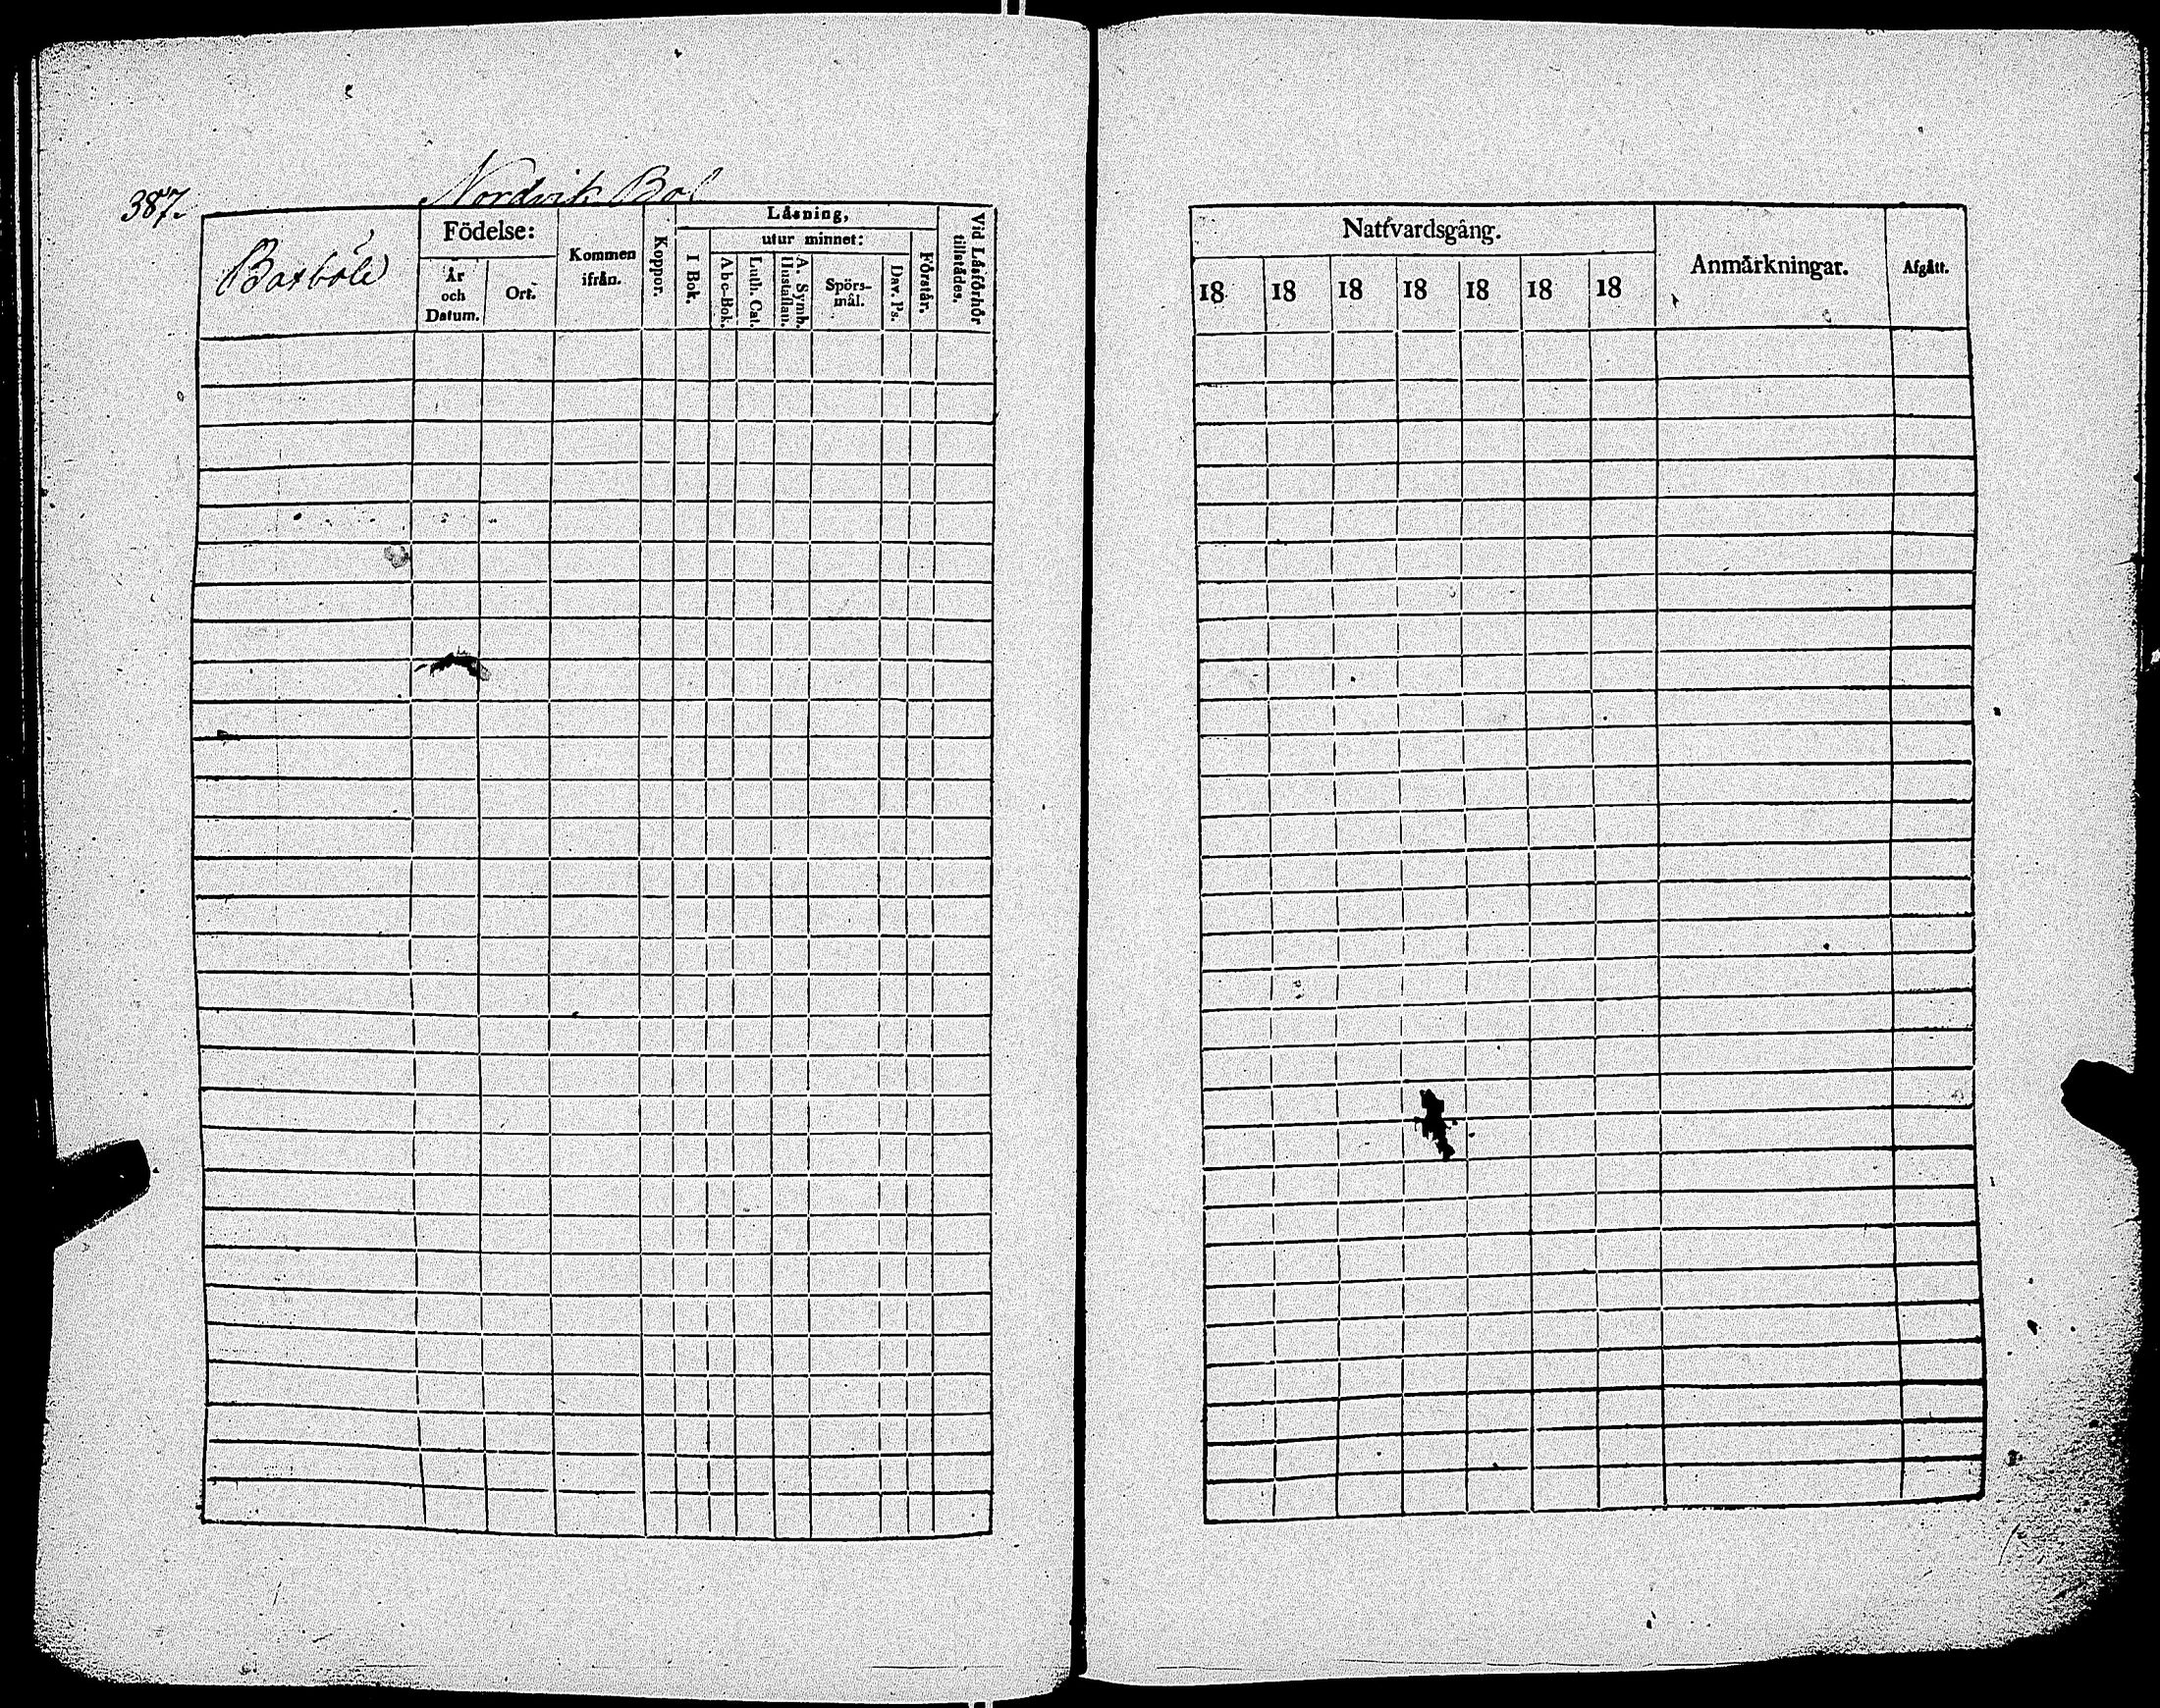 387.
Nordvik Bol
Baxböle
Födelse:
År och Datum.
Ort.
Kommen ifrån.
Koppor.
Läsning,
I Bok.
utur minnet:
Abc-Bok.
Luth. Cat.
A. Symb. Hustaflan.
Spörs-
mål.
Dav. Ps.
Förstår.
Vid Läsförhör tillstädes.
Nattvardsgång.
18 18 18 18 18 18 18
Anmärkningar.
Afgått.